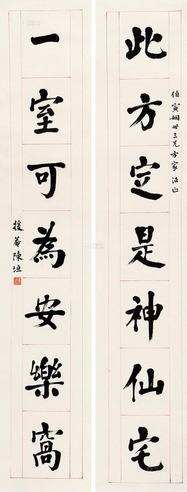 此方定是神仙宅
伯寅姻世三兄方家法正
一室可為安樂窩
援菴陳垣